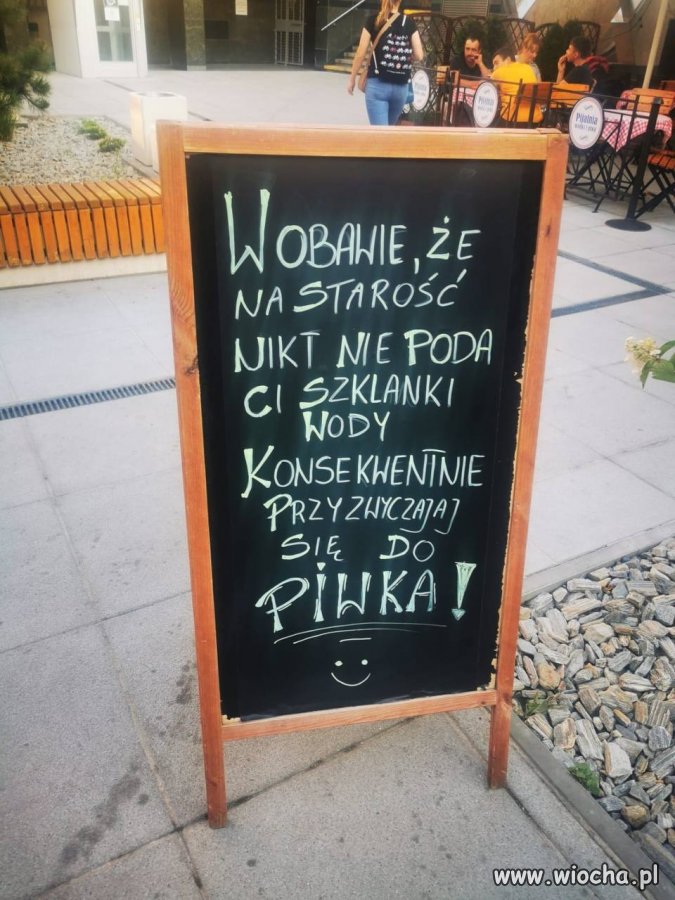 Pijalnia
Pijalnia
Pijalnia
WOBAWIE, ŻE
NA STAROŚĆ
NIKT NIE PODA
CI SZKLANKI
WODY
KONSEKWENTNIE
PRZYZWYCZAJAJ
SIĘ DO
PIWKA!
www.wiocha.pl